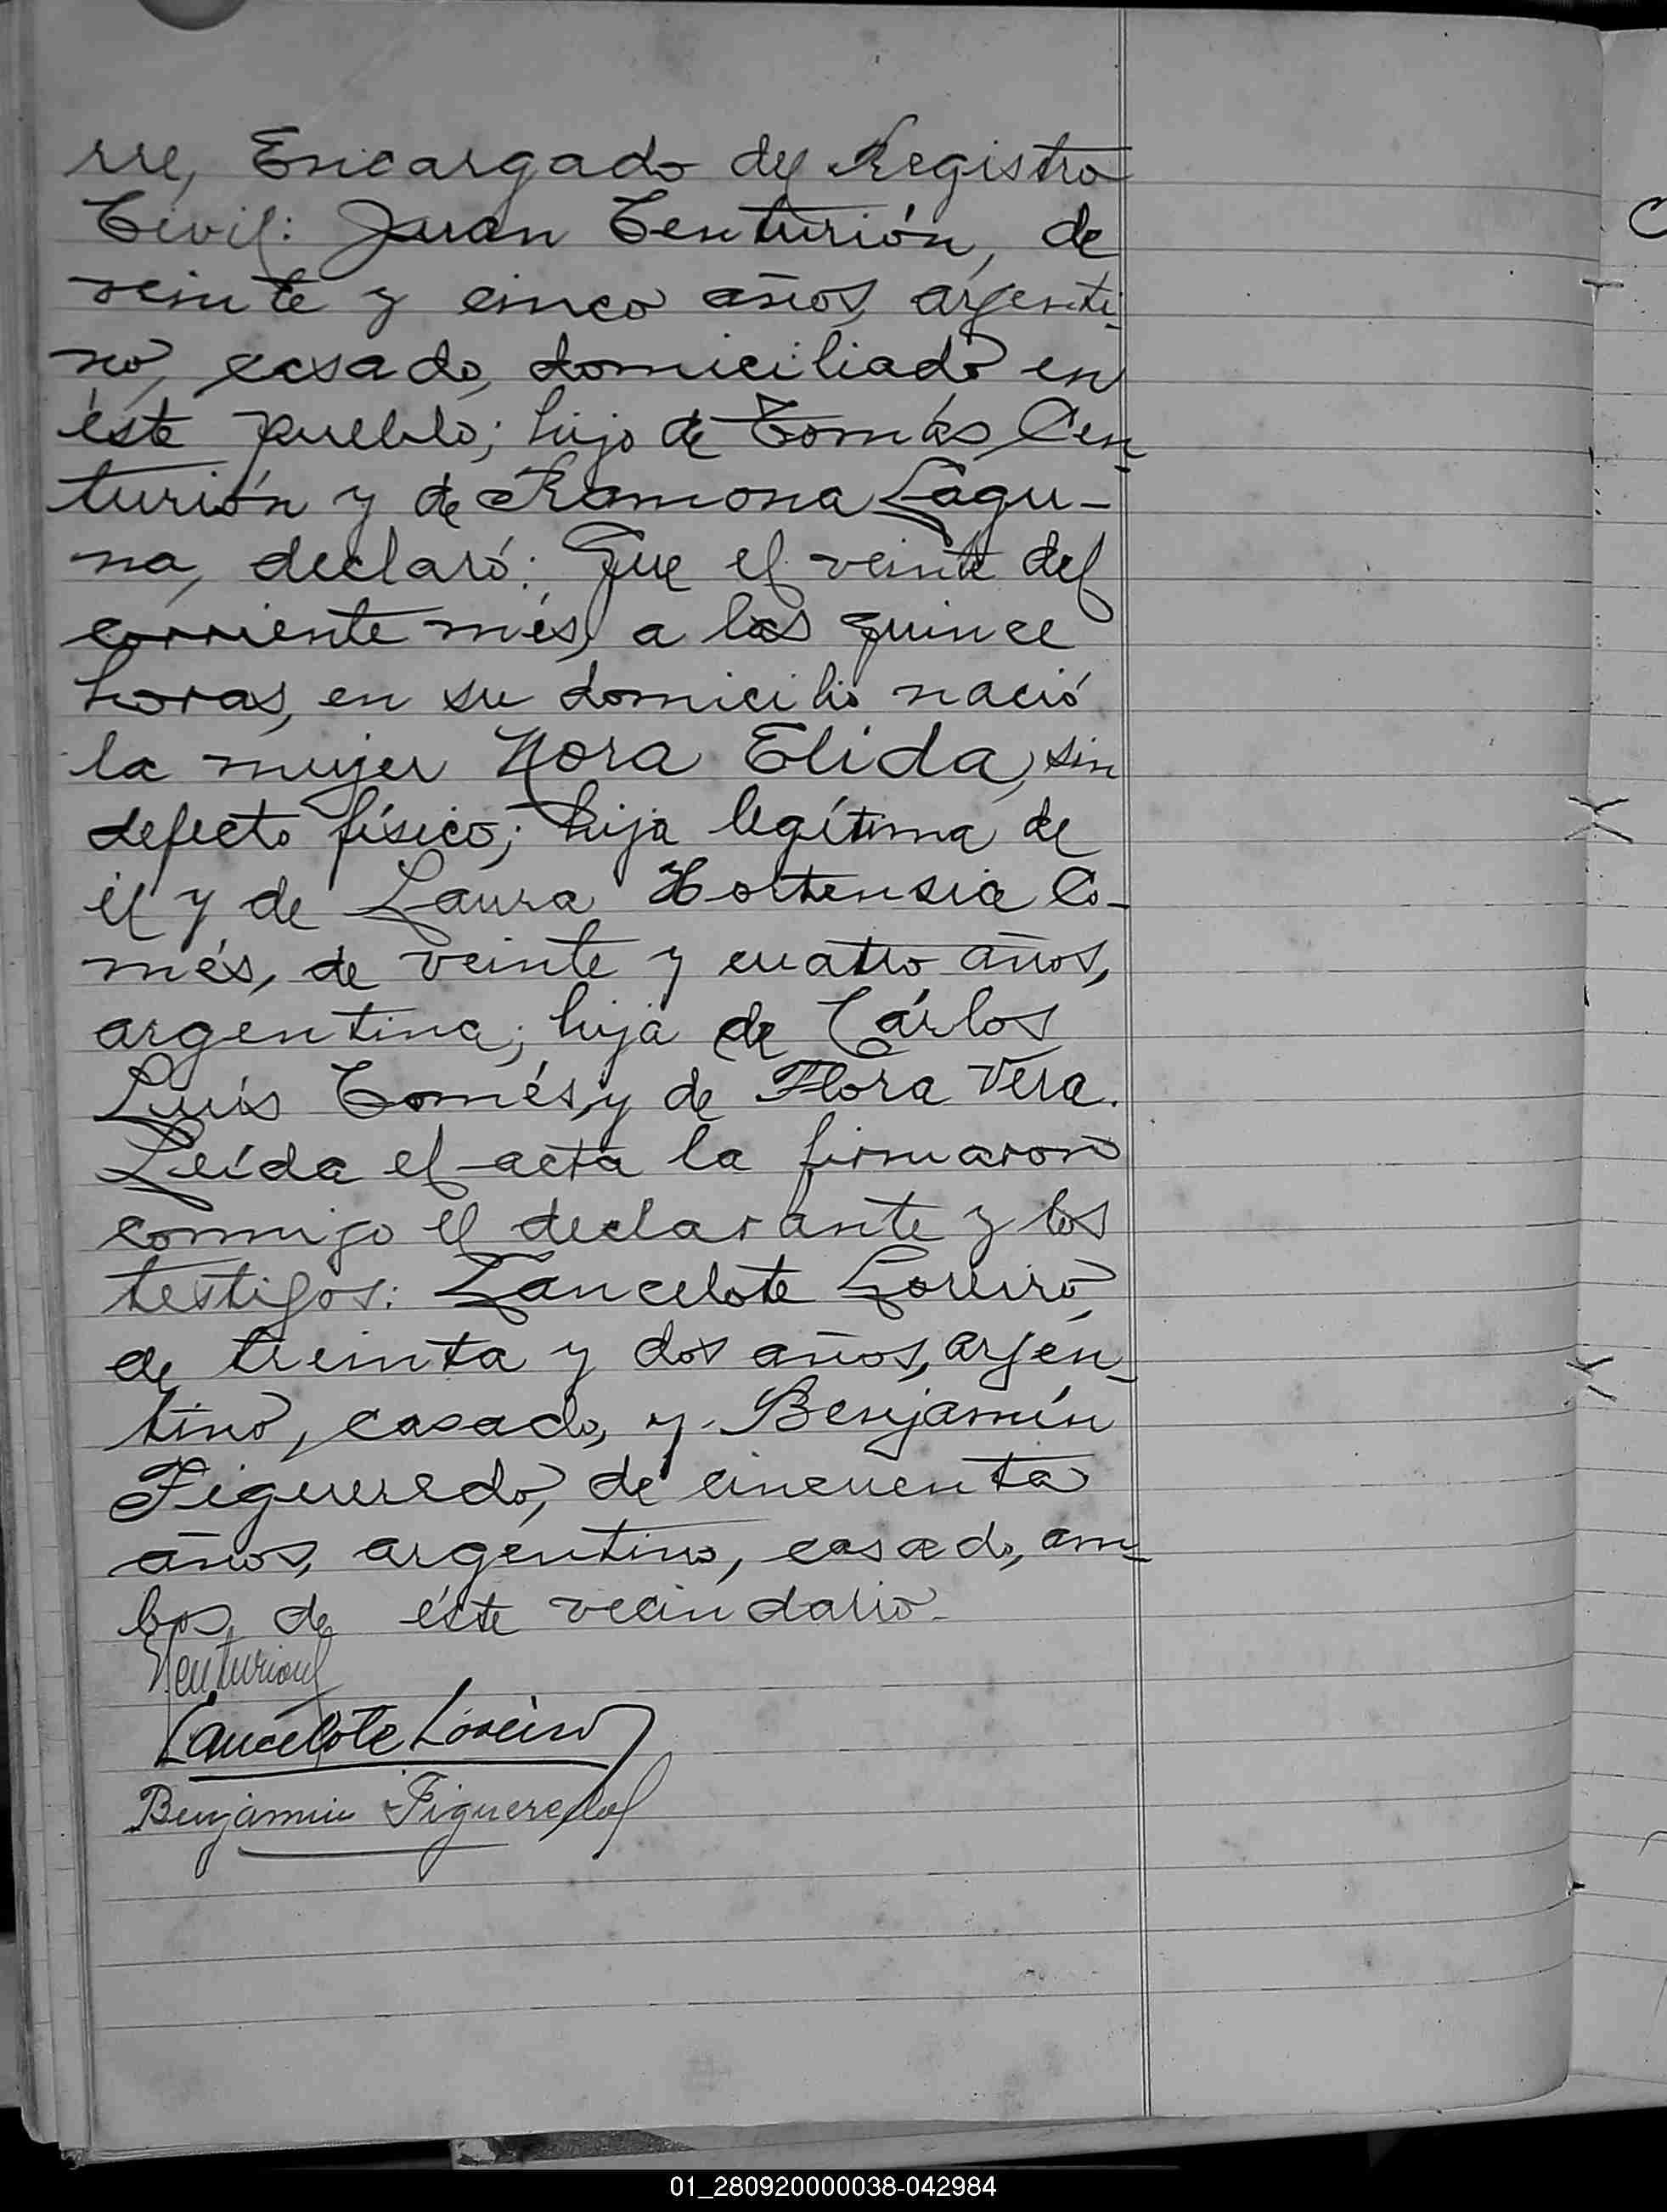 rre, Encargado del Registro
Civil: Juan Centurión, de
veinte y cinco años, argenti-
no, casado, domiciliado en
éste pueblo; hijo de Tomás Cen-
turión y de Ramona Lagu-
na, declaró: Que el veinte del
corriente més, a las quince
horas, en su domicilio nació
la mujer Nora Elida, sin
defecto físico; hija legítima de
él y de Laura Hortensia Co-
més, de veinte y cuatro años,
argentina; hija de Cárlos
Luis Comés, y de Flora Vera.
Leída el acta la firmaron
conmigo el declarante y los
testigos: Lancelote Loreiro,
de treinta y dos años, argen-
tino, casado, y Benjamín
Figueredo, de cincuenta
años, argentino, casado, am-
bos de éste vecindario.
Centurion
Lancelote Loreiro
Benjamin Figueredo
01_280920000038-042984